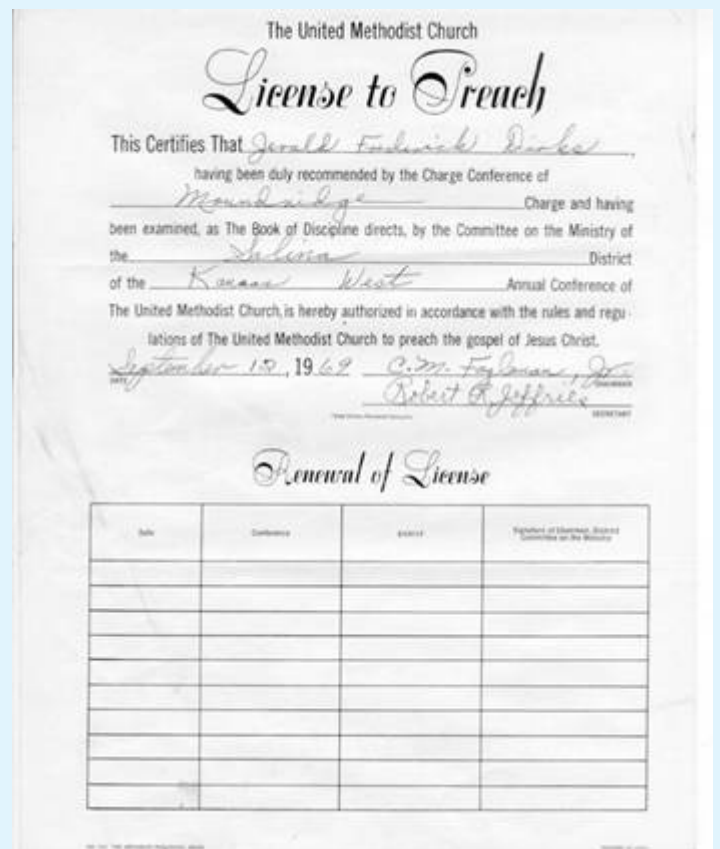 The United Methodist Church
License to Preach
This Certifies That Jerald Frederick Dirks,
having been duly recommended by the Charge Conference of
Moundridge Charge and having
been examined, as The Book of Discipline directs, by the Committee on the Ministry of
the Salina District
of the Kansas West Annual Conference of
The United Methodist Church, is hereby authorized in accordance with the rules and regu-
lations of The United Methodist Church to preach the gospel of Jesus Christ.
September 10, 1969 C.M. Jr.
DATE CHAIRMAN
Robert R. Jeffries
SECRETARY
Renewal of License
Date Conference District Signature of Chairman, District
Committee on the Ministry